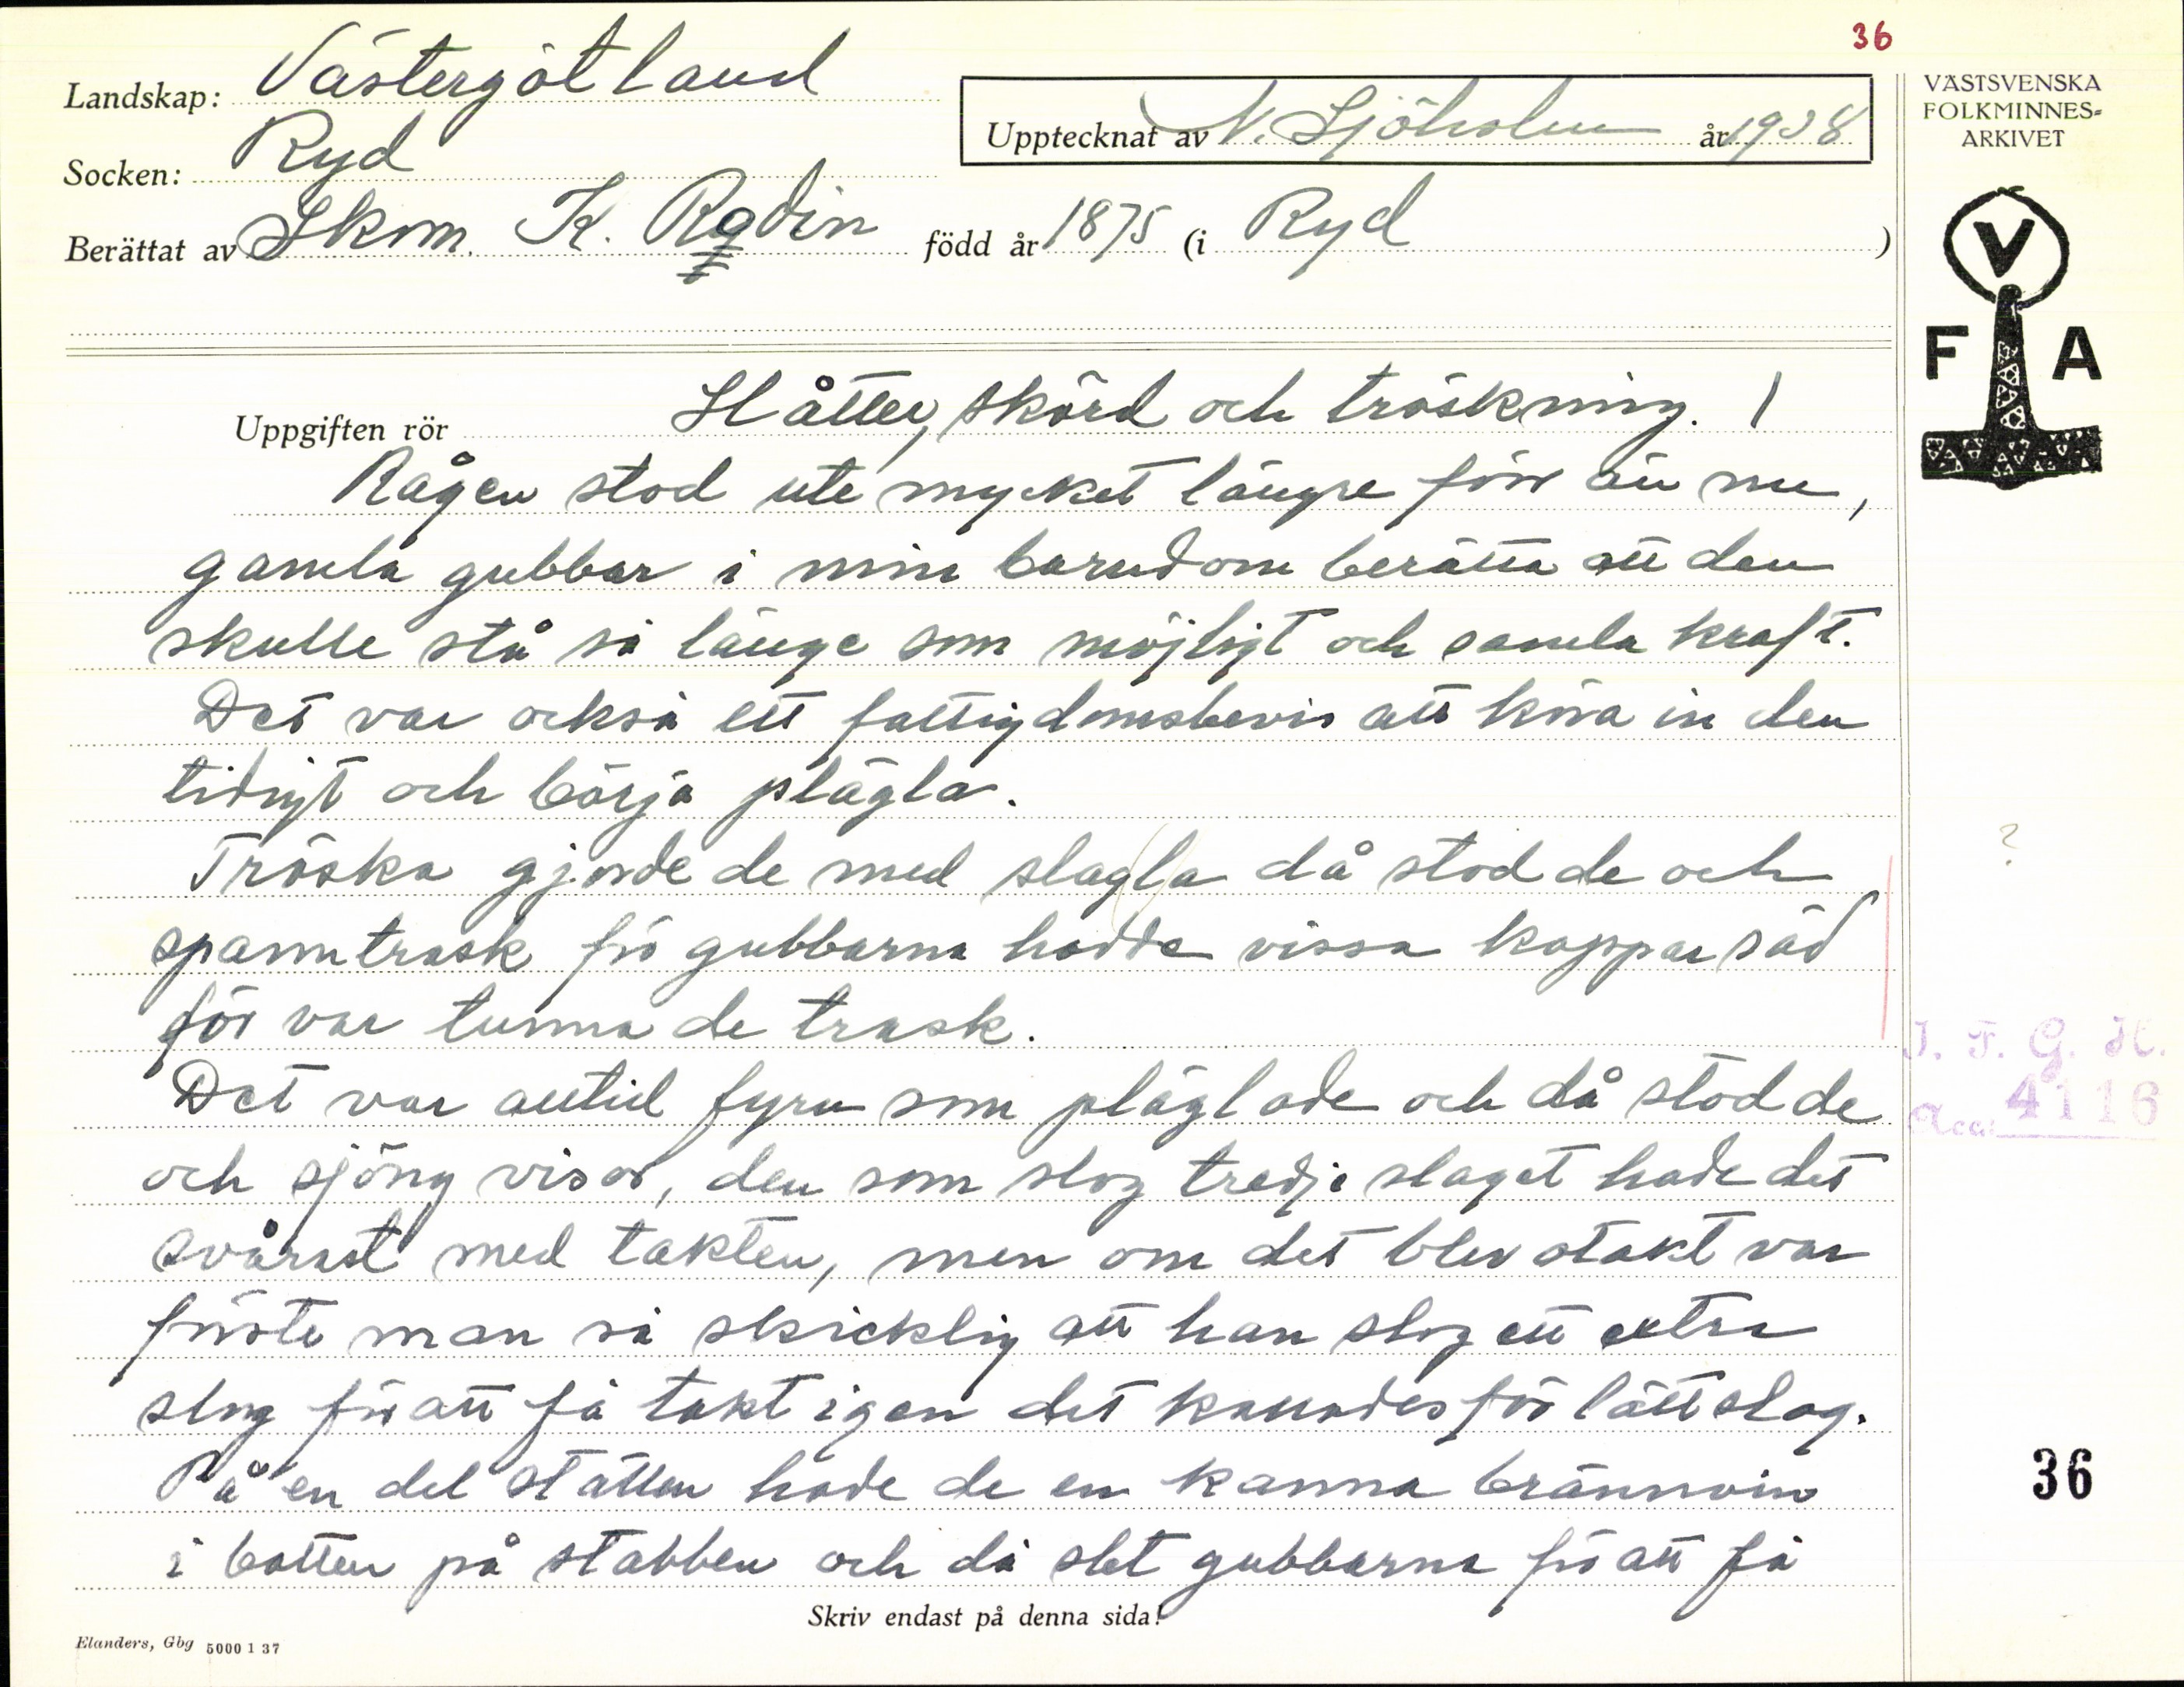 36
Landskap: Västergötland
Upptecknat av N. Sjöholm år 1938
VÄSTSVENSKA
FOLKMINNES=
ARKIVET
Socken: Ryd
Berättat av Skom. K. Rodin född år 1875 (i Ryd )
V
F A
Uppgiften rör Slåtter, skörd och tröskning. 1
Rågen stod ute mycket längre förr än nu,
gamla gubbar i min barndom berätta att den
skulle stå så länge som möjligt och samla kraft.
Det var också ett fattigdomsbevis att köra in den
tidigt och börja plägla.
Tröska gjorde de med slagla då stod de och
?
spanntrask för gubbarna hadde vissa kappar säd
för var tunna de trask.
J. F. G. H.
Det var alltid fyra som pläglade och då stod de
Acc: 4116
och sjöng visor, den som slog tredje slaget hade det
svårast med takten, men om det blev otakt var
förste man så skicklig att han slog ett extra
slag för att få takt igen det kallades för lättslag.
På en del ställen hade de en kanna brännvin
36
i botten på stabben och då slet gubbarna för att få
Skriv endast på denna sida!
Elanders, Gbg 5000 1 37